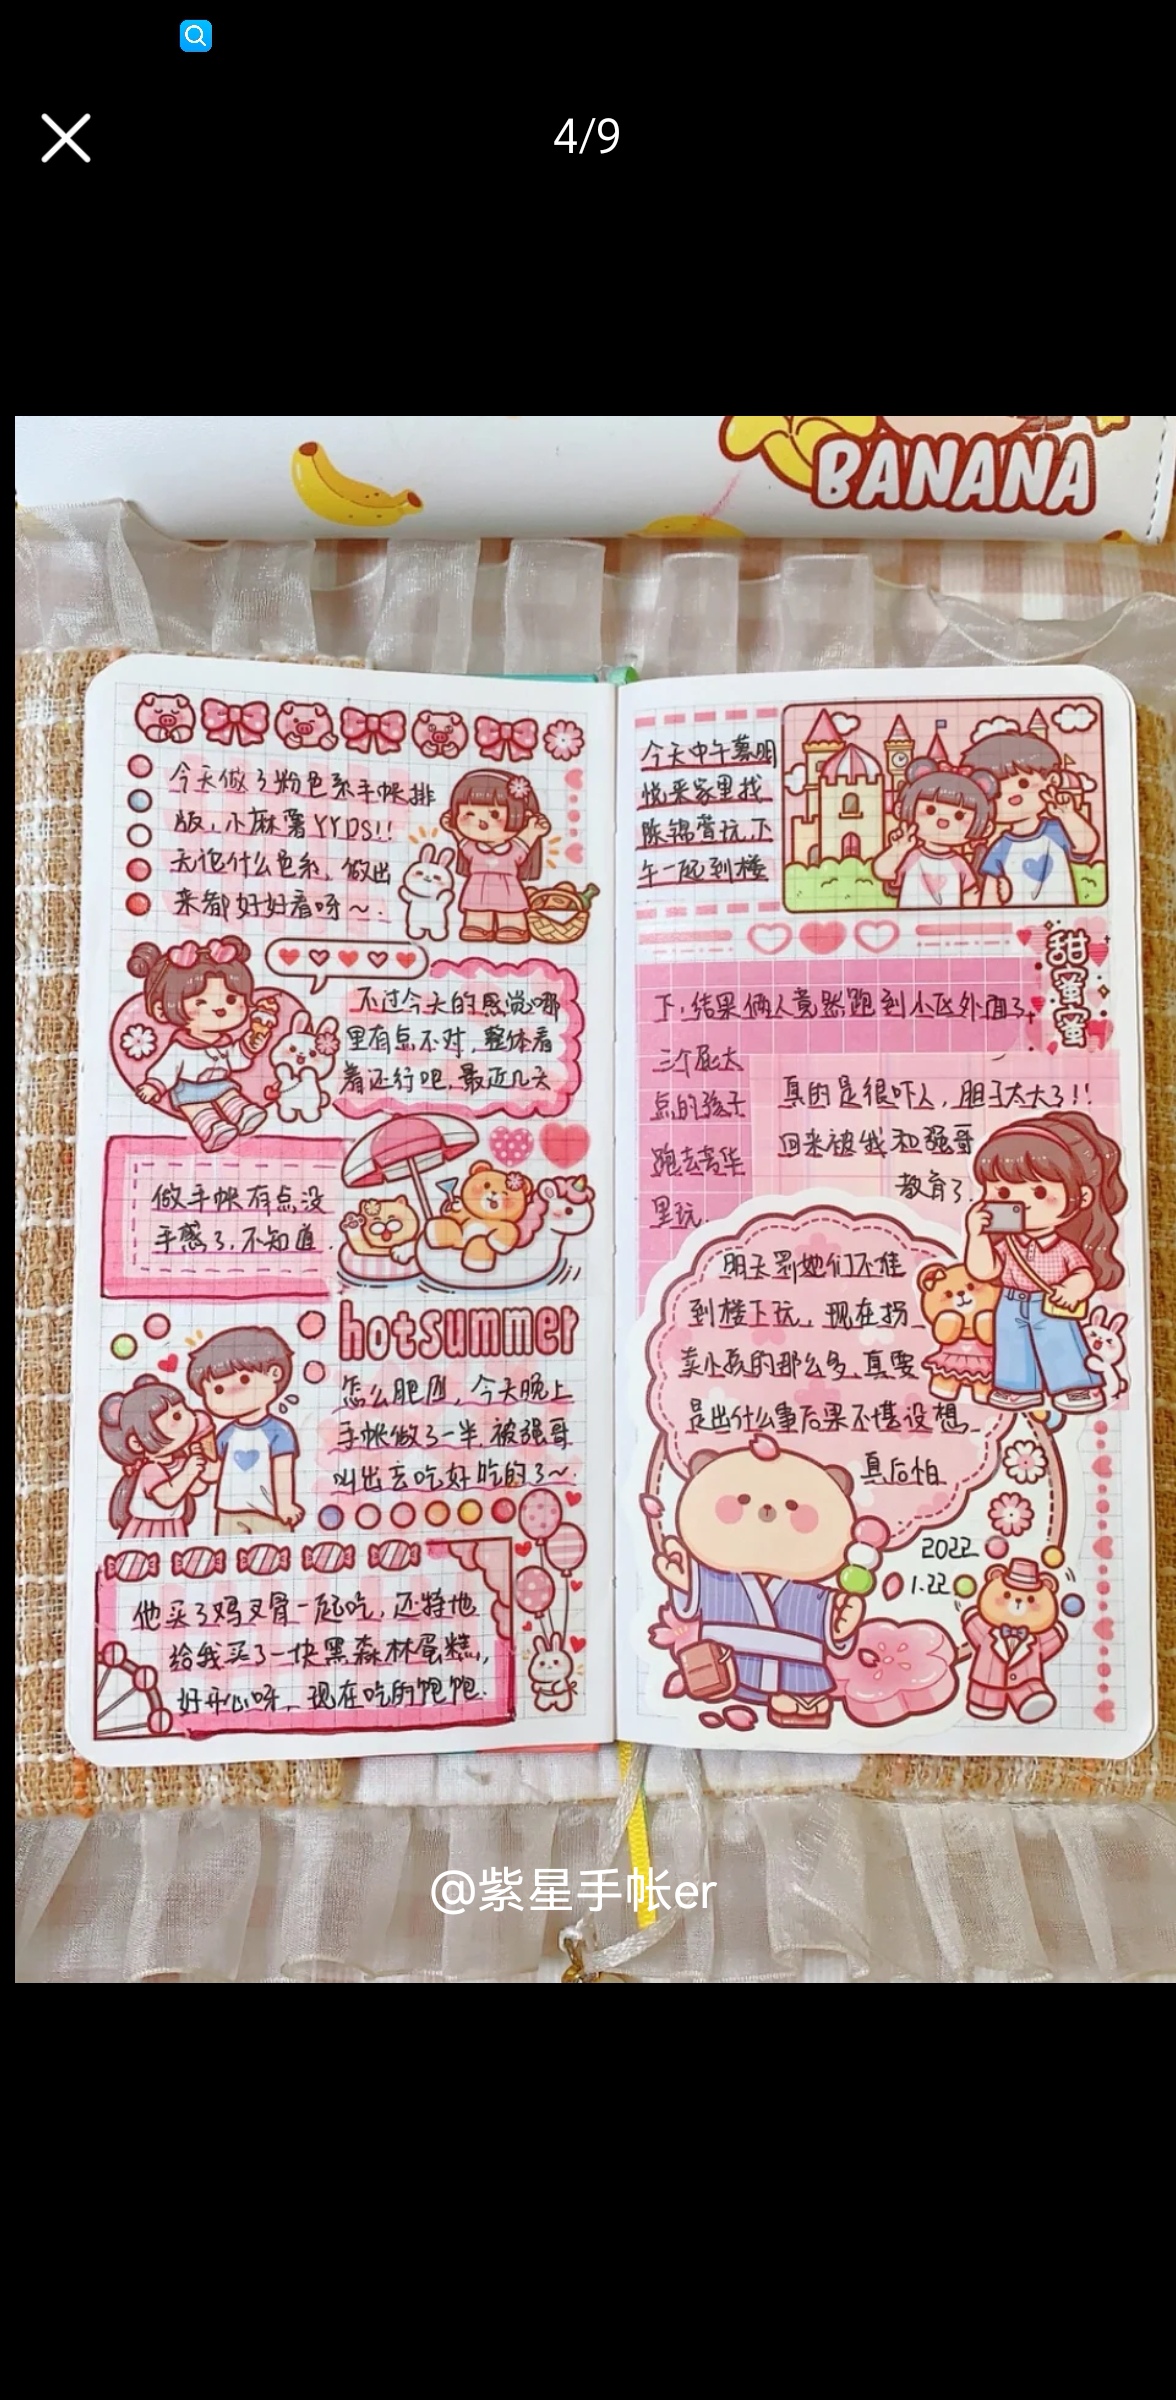 4/9
BANANA
今天做了粉色系手帐排
版，小麻薯YYDS!!
无论什么色系，做出
来都好好看呀～.
不过今天的感觉哪
里有点不对，整体看
着还行吧，最近几天
做手帐有点没
手感了，不知道
hotsummer
怎么肥四，今天晚上
手帐做了一半，被强哥
叫出去吃好吃的了～.
他买了鸡叉骨一起吃，还特地
给我买了一块黑森林蛋糕，
好开心呀，现在吃的饱饱.
今天中午慕明
悦来家里找
陈锦萱玩，下
午一起到楼
甜蜜蜜
下，结果俩人竟然跑到小区外面了，
三个屁大
点的孩子
跑去
里玩.
真的是很吓人，胆子太大了!!
回来被我和强哥
教育了.
明天罚她们不准
到楼下玩，现在拐
卖小孩的那么多，真要
是出什么事后果不堪设想.
真后怕.
2022
1.22
@紫星手帐er